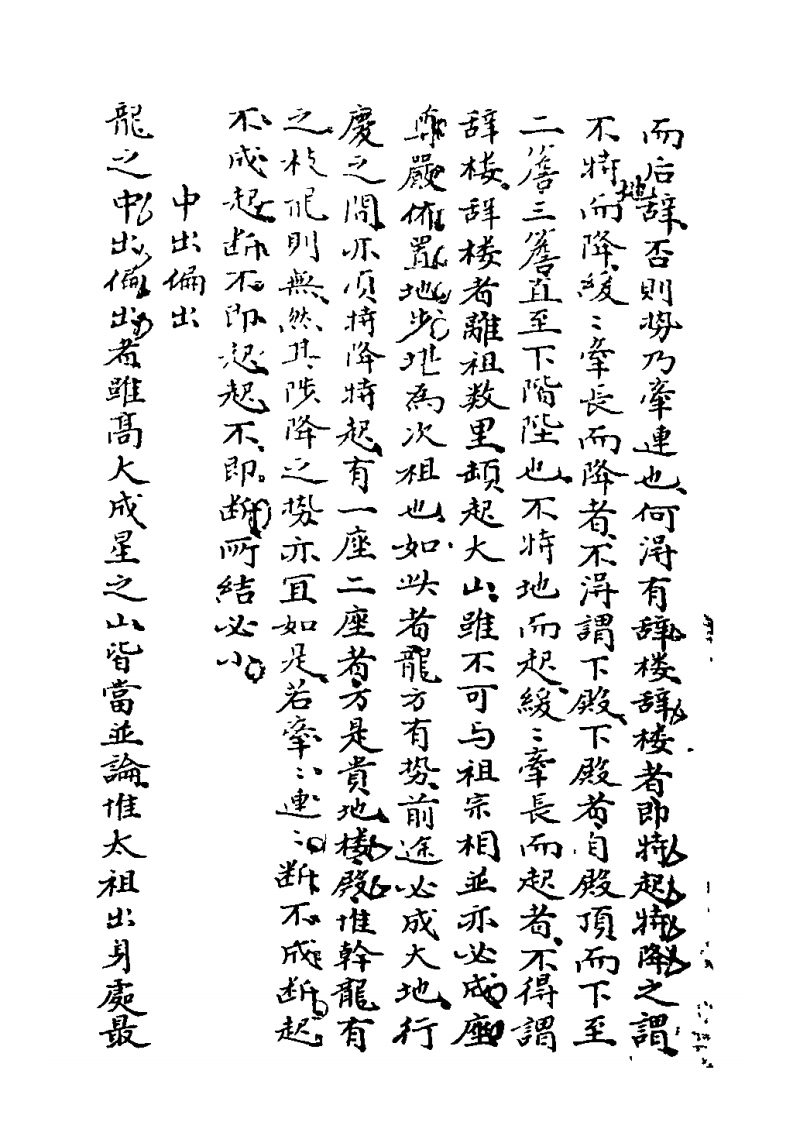 而后辞否則势乃牽連也何淂有辞楼辞楼者即特起特降之謂
不特地而降緩〻牽長而降者不淂謂下殿下殿者自殿頂而下至
二簷三簷直至下階陛也不特地而起緩〻牽長而起者不得謂
辞楼辞楼者離祖数里頓起大山雖不可与祖宗相並亦必成座
尊嚴佈置地步堪為次祖也如此者龍方有势前途必成大地行
慶之間亦須特降特起有一座二座者方是貴地楼殿惟幹龍有
之枝龍則無然其陟降之势亦宜如是若牽〻連〻断不成断起
不成起断不即起起不即断所結必小
中出偏出
龍之中出偏出者雖髙大成星之山皆當並論惟太祖出身處最